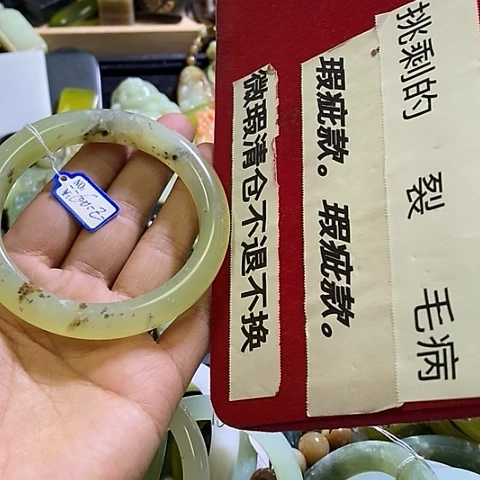 挑剩的 裂 毛病
瑕疵款。瑕疵款。
微瑕清仓不退不换